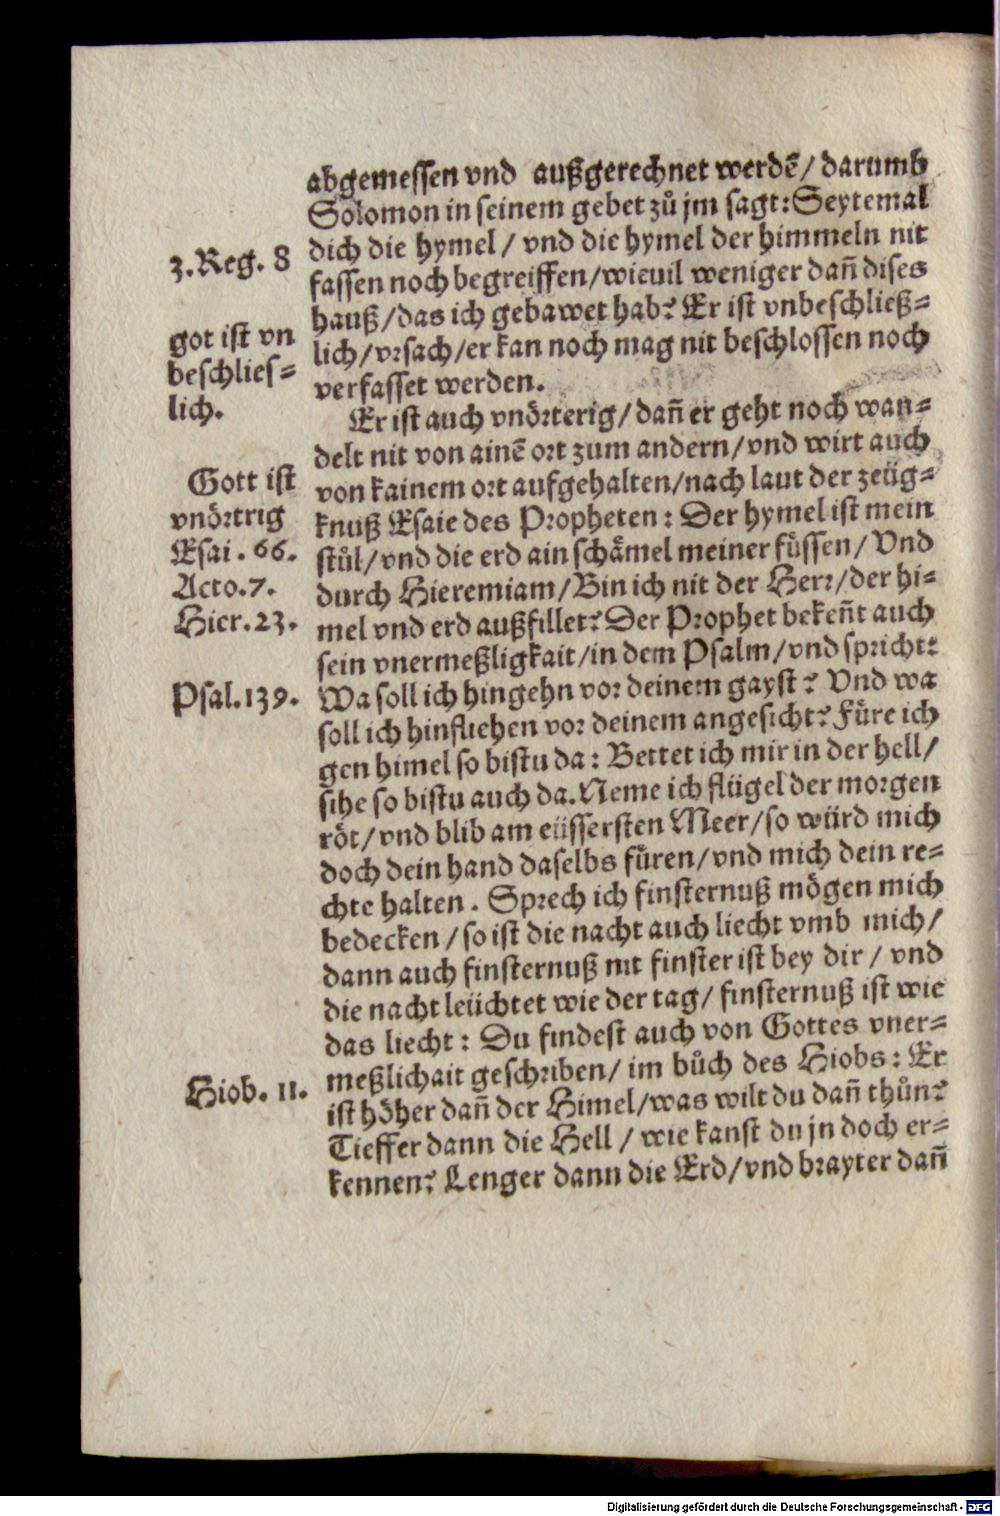 abgemessen vnd außgerechnet werdē/ darumb
Solomon in seinem gebet zů jm sagt: Seytemal
dich die hymel / vnd die hymel der himmeln nit
3. Reg. 8
fassen noch begreiffen/wieuil weniger dañ dises
hauß/das ich gebawet hab? Er ist vnbeschließ=
got ist vn
beschlies=
lich.
lich/vrsach/er kan noch mag nit beschlossen noch
verfasset werden.
Er ist auch vnörterig/dañ er geht noch wan=
delt nit von ainē ort zum andern/vnd wirt auch
Gott ist
vnörtrig
Esai. 66.
Acto. 7.
Hier. 23.
von kainem ort aufgehalten/nach laut der zeüg=
knuß Esaie des Propheten: Der hymel ist mein
stůl/vnd die erd ain schåmel meiner füssen/ Vnd
durch Hieremiam/Bin ich nit der Herr/der hi=
mel vnd erd außfillet? Der Prophet bekeñt auch
sein vnermeßligkait/in dem Psalm/vnd spricht:
Psal. 139.
Wa soll ich hingehn vor deinem gayst? Vnd wa
soll ich hinfliehen vor deinem angesicht? Füre ich
gen himel so bistu da: Bettet ich mir in der hell/
sihe so bistu auch da. Neme ich flügel der morgen
röt/vnd blib am eüssersten Meer/so würd mich
doch dein hand daselbs füren/vnd mich dein re=
chte halten. Sprech ich finsternuß mögen mich
bedecken/so ist die nacht auch liecht vmb mich/
dann auch finsternuß nit finster ist bey dir / vnd
die nacht leüchtet wie der tag/ finsternuß ist wie
das liecht: Du findest auch von Gottes vner=
meßlichait geschriben/ im bůch des Hiobs: Er
Hiob. 11.
ist höher dañ der Himel/was wilt du dañ thůn?
Tieffer dann die Hell / wie kanst du jn doch er=
kennen? Lenger dann die Erd/vnd brayter dañ
Digitalisierung gefördert durch die Deutsche Forschungsgemeinschaft - DFG